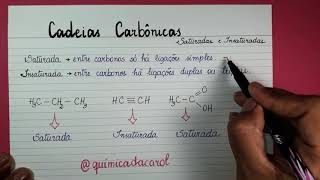 Cadeias Carbônicas
Saturadas e Insaturadas
Saturada → entre carbonos só há ligações simples.
Insaturada → entre carbonos há ligações duplas ou triplas.
H₃C – CH₂ – CH₃ HC ≡ CH H₃C – C
O
OH
Saturada Insaturada Saturada
@quimicadacarol